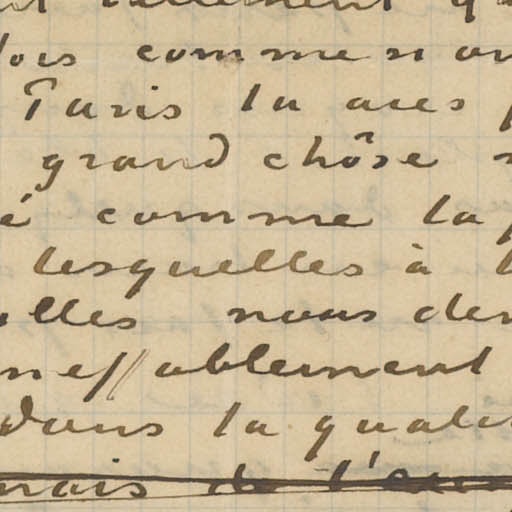 comme
Paris tu aies
grand chôse
é comme la
lesquelles à
elles nous
ineffablement
dans la quali
mais de l'